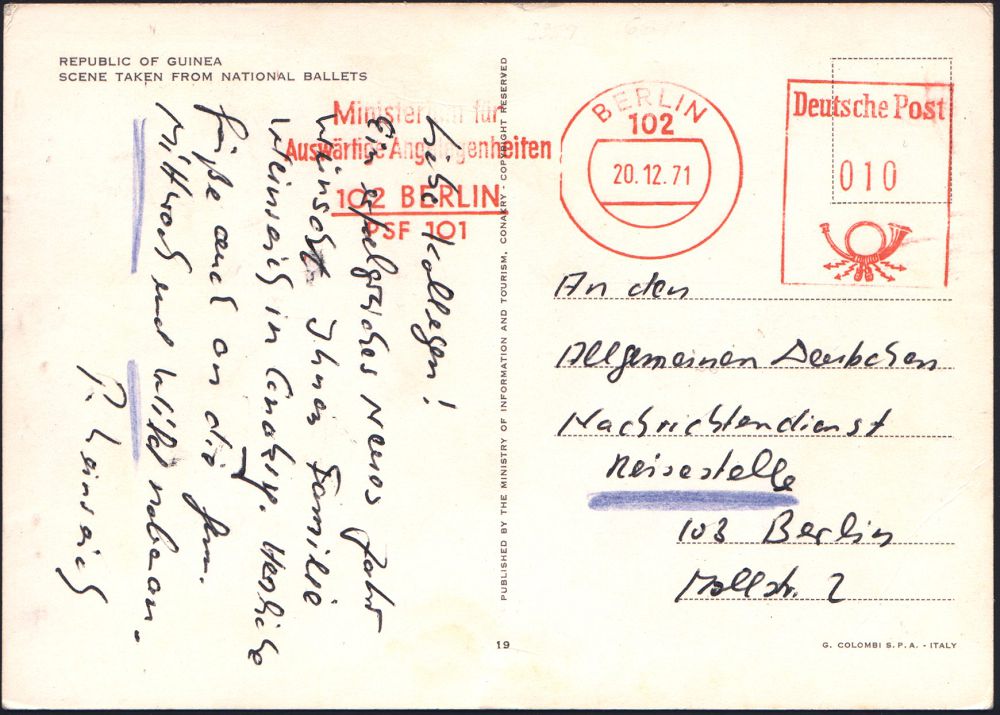 REPUBLIC OF GUINEA
SCENE TAKEN FROM NATIONAL BALLETS
Ministerium für
Auswärtige Angelegenheiten
102 BERLIN
PSF 101
BERLIN
102
20.12.71
Deutsche Post
010
Liebe Kollegen!
Ein erfolgreiches Neues Jahr
wünscht Ihnen Familie
in Conakry. Herzliche
Grüße auch an die
Mittwoch und
PUBLISHED BY THE MINISTRY OF INFORMATION AND TOURISM, CONAKRY - COPYRIGHT RESERVED
An den
Allgemeinen Deutschen
Nachrichtendienst
Reisestelle
103 Berlin
Mollstr. 2
19
G. COLOMBI S.P.A. - ITALY